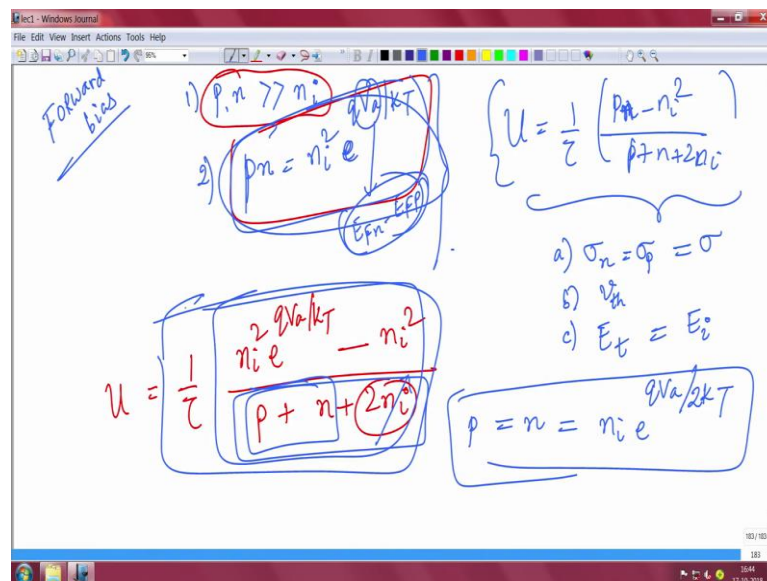 lec1 - Windows Journal
File Edit View Insert Actions Tools Help
FORWARD
bias
1) p, n >> ni
2) pn = ni² e^qVa/kT
EFn - EFp
U = 1/τ (pn - ni² / p + n + 2ni)
a) σn = σp = σ
b) vth
c) Et = Ei
U = 1/τ ni² e^qVa/kT - ni² / p + n + 2ni
p = n = ni e^qVa/2kT
183/183
183
16:44